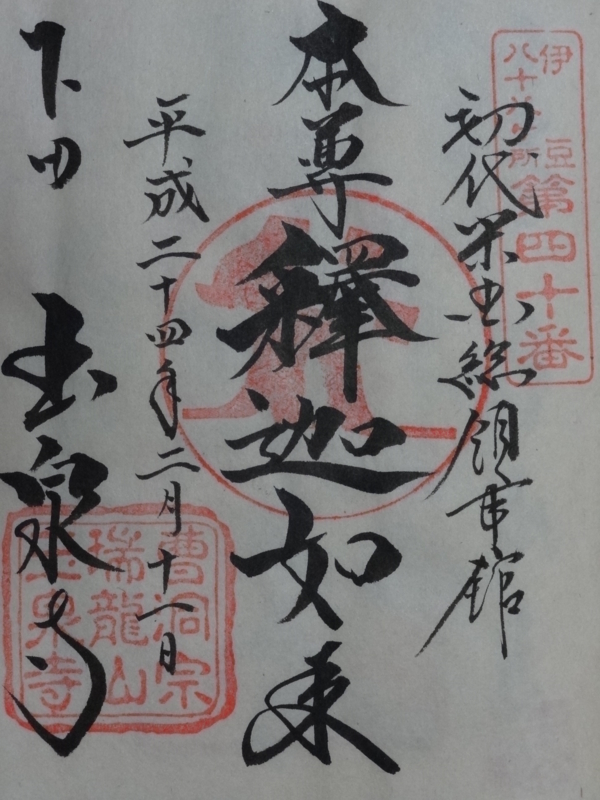 伊豆
八十八ヶ所
第四十番
初代米国総領事館
本尊
釋迦如来
平成二十四年二月十一日
下田
玉泉寺
曹洞宗
瑞龍山
玉泉寺